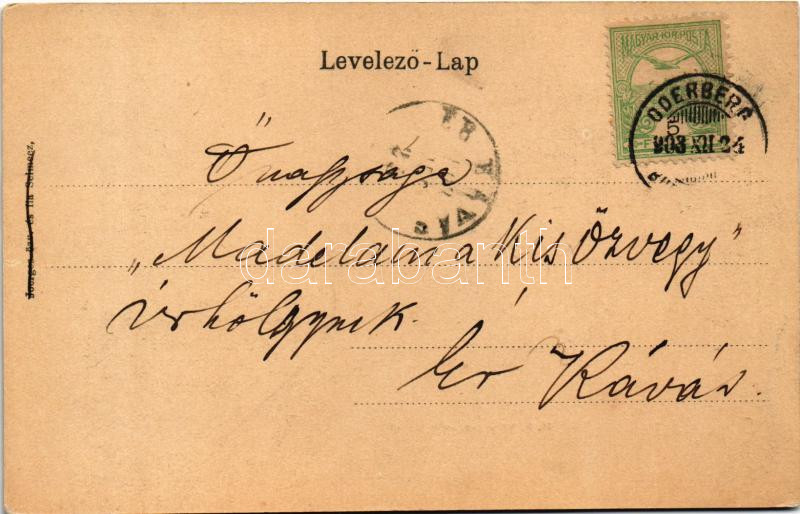 Levelező-Lap
MAGYAR KIR. POSTA
ODERBERG
903 XII 24
ÉR KÁVÁS
Őnagysága
"Madelaine a Kis Özvegy"
úrhölgynek.
Ér Kávás.
és fia Selmecz,
darabanth